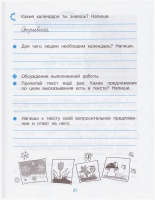 Какие календари ты знаешь? Напиши.
Отрывной
Для чего людям необходим календарь? Напиши.
Обсуждение выполненной работы.
Прочитай текст ещё раз. Какие предложения
по цели высказывания есть в тексте? Напиши.
Напиши к тексту своё вопросительное предложение
и ответ на него.
31